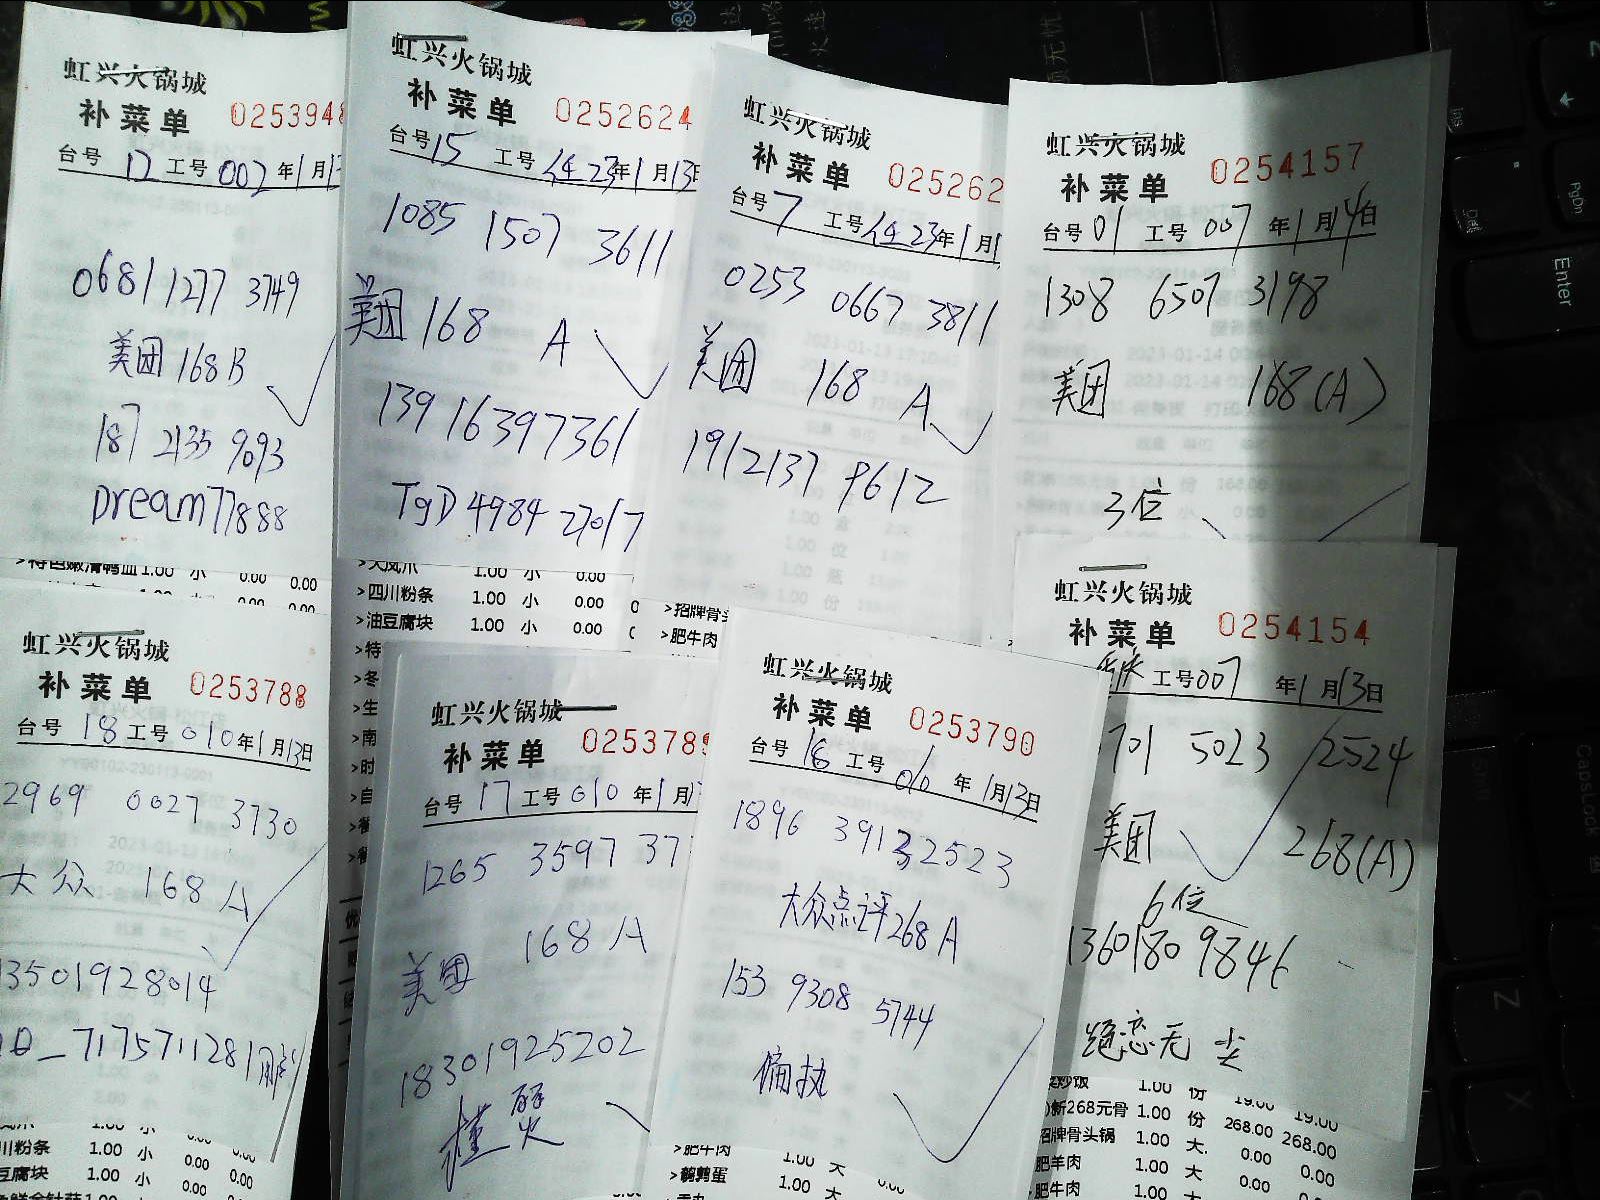 虹兴火锅城
补菜单 025394
台号 12 工号 002 年 1 月 13
0681 1277 3749
美团 168 B
187 2135 9093
Dream77888
1.00 小 0.00 0.00
虹兴火锅城
补菜单 0252624
台号 15 工号 23 年 1 月 13日
1085 1507 3611
美团 168 A
139 16397361
TgD 4984 27017
>大凤爪 1.00 小 0.00
>四川粉条 1.00 小 0.00
>油豆腐块 1.00 小 0.00
>特
>冬
>生
>南
>时
>自
虹兴火锅城
补菜单 025262
台号 7 工号 23 年 1 月 1
0253 0667 3811
美团 168 A
191 2137 9612
>招牌骨头
>肥牛肉
虹兴火锅城
补菜单 0254157
台号 01 工号 007 年 1 月 14 日
1308 6507 3198
美团 168(A)
3位
虹兴火锅城
补菜单 0253788
台号 18 工号 010 年 1 月 13 日
2969 0027 3730
大众 168 A
13501928014
717571128
川粉条 1.00 小 0.00 0.00
豆腐块 1.00 小 0.00 0.00
虹兴火锅城
补菜单 025378
台号 17 工号 010 年 1 月
1265 3597 37
168 A
美团
18301925202
虹兴火锅城
补菜单 0253790
台号 16 工号 010 年 1 月 13 日
1896 3913 2523
大众点评 268 A
153 9308 5744
偏执
>肥牛肉 1.00 大 0.00
>鹌鹑蛋 1.00 大
虹兴火锅城
补菜单 0254154
工号 007 年 1 月 13 日
701 5023 2524
美团 268(A)
6位
1360180 9846
绝恋无尘
炒饭 1.00 份 19.00 19.00
新268元骨 1.00 份 268.00 268.00
招牌骨头锅 1.00 大 0.00 0.00
肥羊肉 1.00 大 0.00 0.00
肥牛肉 1.00 大 0.00